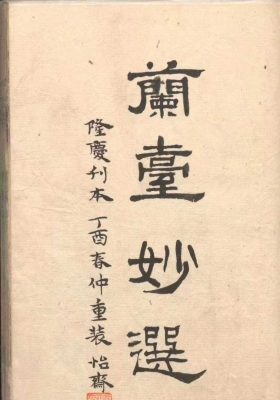 蘭臺妙選
隆慶刊本丁酉春仲重裝怡齋